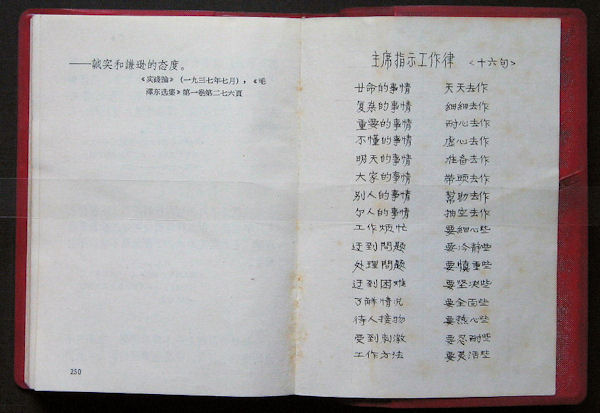 ——誠实和謙逊的态度。
《实踐論》(一九三七年七月),《毛
澤东选集》第一卷第二七六頁
250
主席指示工作律 〈十六句〉
革命的事情 天天去作
复杂的事情 細細去作
重要的事情 耐心去作
不懂的事情 虚心去作
明天的事情 准备去作
大家的事情 带头去作
別人的事情 幫助去作
个人的事情 抽空去作
工作烦忙 要細心些
迂到問題 要冷静些
处理問題 要慎重些
迂到困难 要坚决些
了解情况 要全面些
待人接物 要热心些
受到刺激 要忍耐些
工作方法 要灵活些